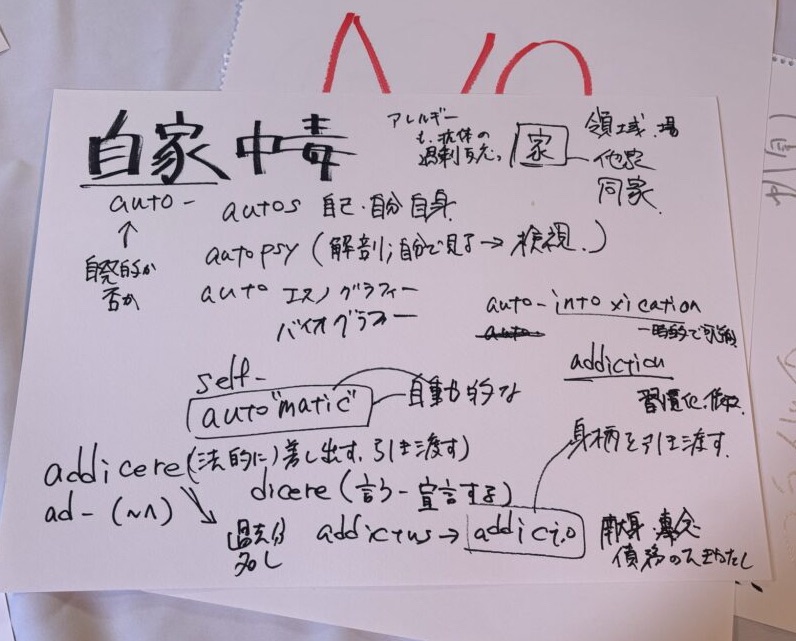 自家中毒
アレルギー
も、抗体の
過剰反応。
家
領域、場
他家
同家
auto- autos 自己・自分自身
↑
自発的か
否か
autopsy (解剖;自分で見る→検視。)
auto エスノグラフィー
バイオグラフィー
auto-intoxication
一時的で
self-
auto"matic" 自動的な
addiction
習慣化、依存
身柄を引き渡す
addicere (法的に)差し出す、引き渡す)
ad- (~へ)
dicere (言う-宣言する)
過去分
addictus → addictio 献身・専念
債務の